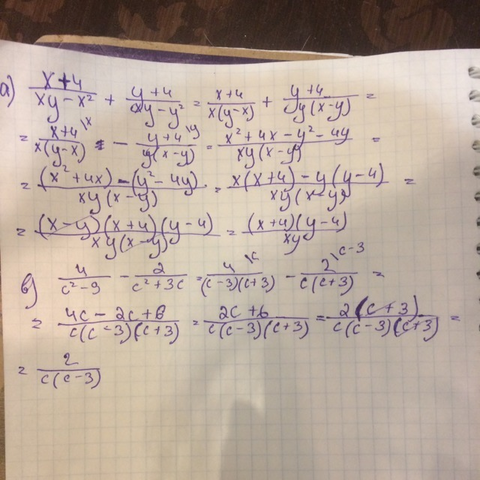 а) (x+4)/(xy-x²) + (y+4)/(xy-y²) = (x+4)/(x(y-x)) + (y+4)/(y(x-y)) =
= (x+4)\x/(x(y-x)) - (y+4)\y/(y(x-y)) = (x²+4x-y²-4y)/(xy(x-y)) =
= ((x²+4x)-(y²-4y))/(xy(x-y)) = (x(x+4)-y(y-4))/(xy(x-y)) =
= ((x-y)(x+4)(y-4))/(xy(x-y)) = ((x+4)(y-4))/(xy)
в) 4/(c²-9) - 2/(c²+3c) = 4\c/((c-3)(c+3)) - 2\c-3/(c(c+3)) =
= (4c-2c+6)/(c(c-3)(c+3)) = (2c+6)/(c(c-3)(c+3)) = (2(c+3))/(c(c-3)(c+3)) =
= 2/(c(c-3))